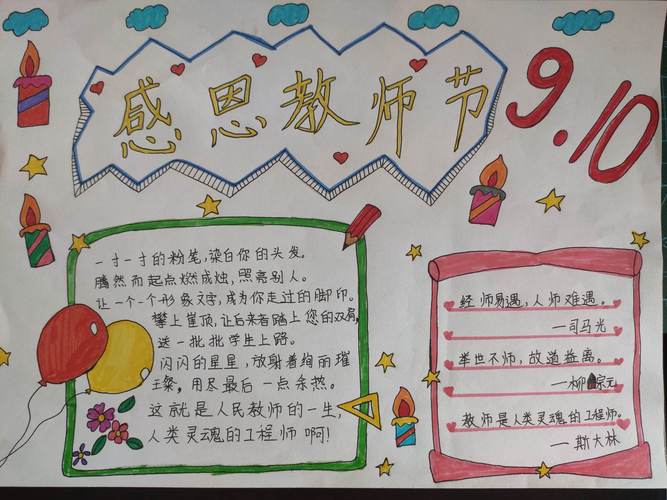 感恩教师节
9.10
一寸一寸的粉笔,染白你的头发。
腾然而起点燃成烛,照亮别人。
让一个一个形象文字,成为你走过的脚印。
攀上崖顶,让后来者踏上您的双肩,
送一批批学生上路。
闪闪的星星,放射着绚丽璀
璨,用尽最后一点余热。
这就是人民教师的一生,
人类灵魂的工程师啊!
经师易遇,人师难遇。
—司马光
举世不师,故道益离。
—柳宗元
教师是人类灵魂的工程师。
—斯大林